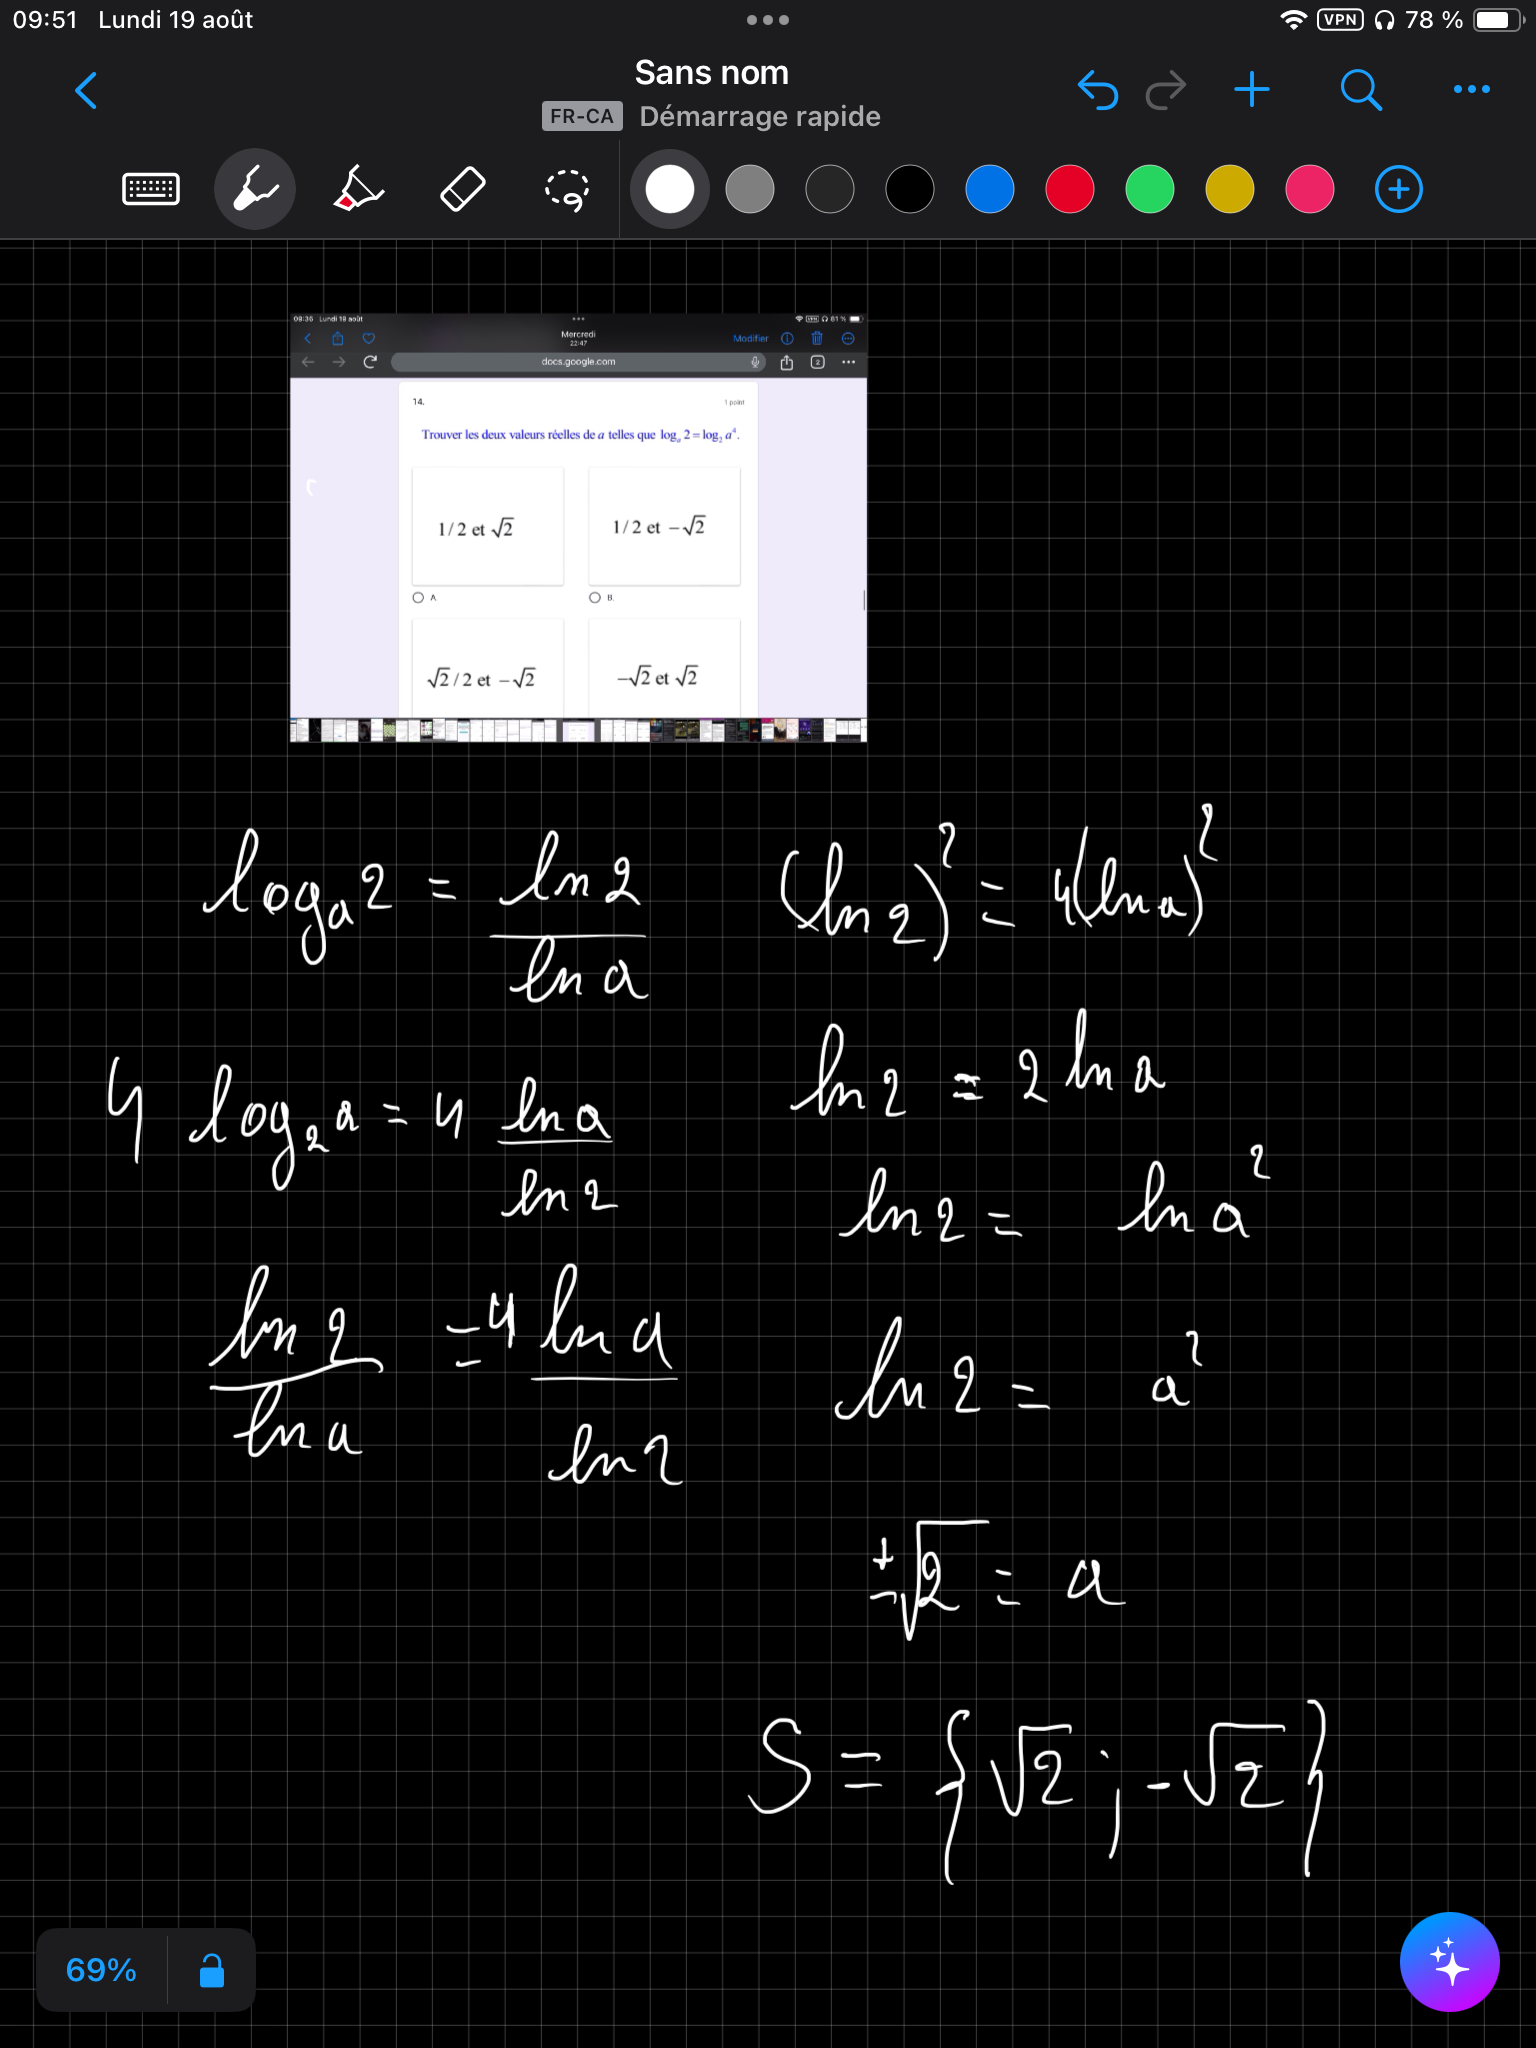 09:51 Lundi 19 août
VPN 78 %
Sans nom
FR-CA Démarrage rapide
09:36 Lundi 19 août
VPN 81 %
Mercredi
22:47
Modifier
docs.google.com
2
14.
1 point
Trouver les deux valeurs réelles de a telles que logₐ 2 = log₂ a⁴.
1/2 et √2
1/2 et −√2
A.
B.
√2/2 et −√2
−√2 et √2
logₐ 2 = ln 2 / ln a
4 log₂ a = 4 ln a / ln 2
ln 2 / ln a = 4 ln a / ln 2
(ln 2)² = 4(ln a)²
ln 2 = 2 ln a
ln 2 = ln a²
ln 2 = a²
±√2 = a
S = {√2 ; -√2}
69%